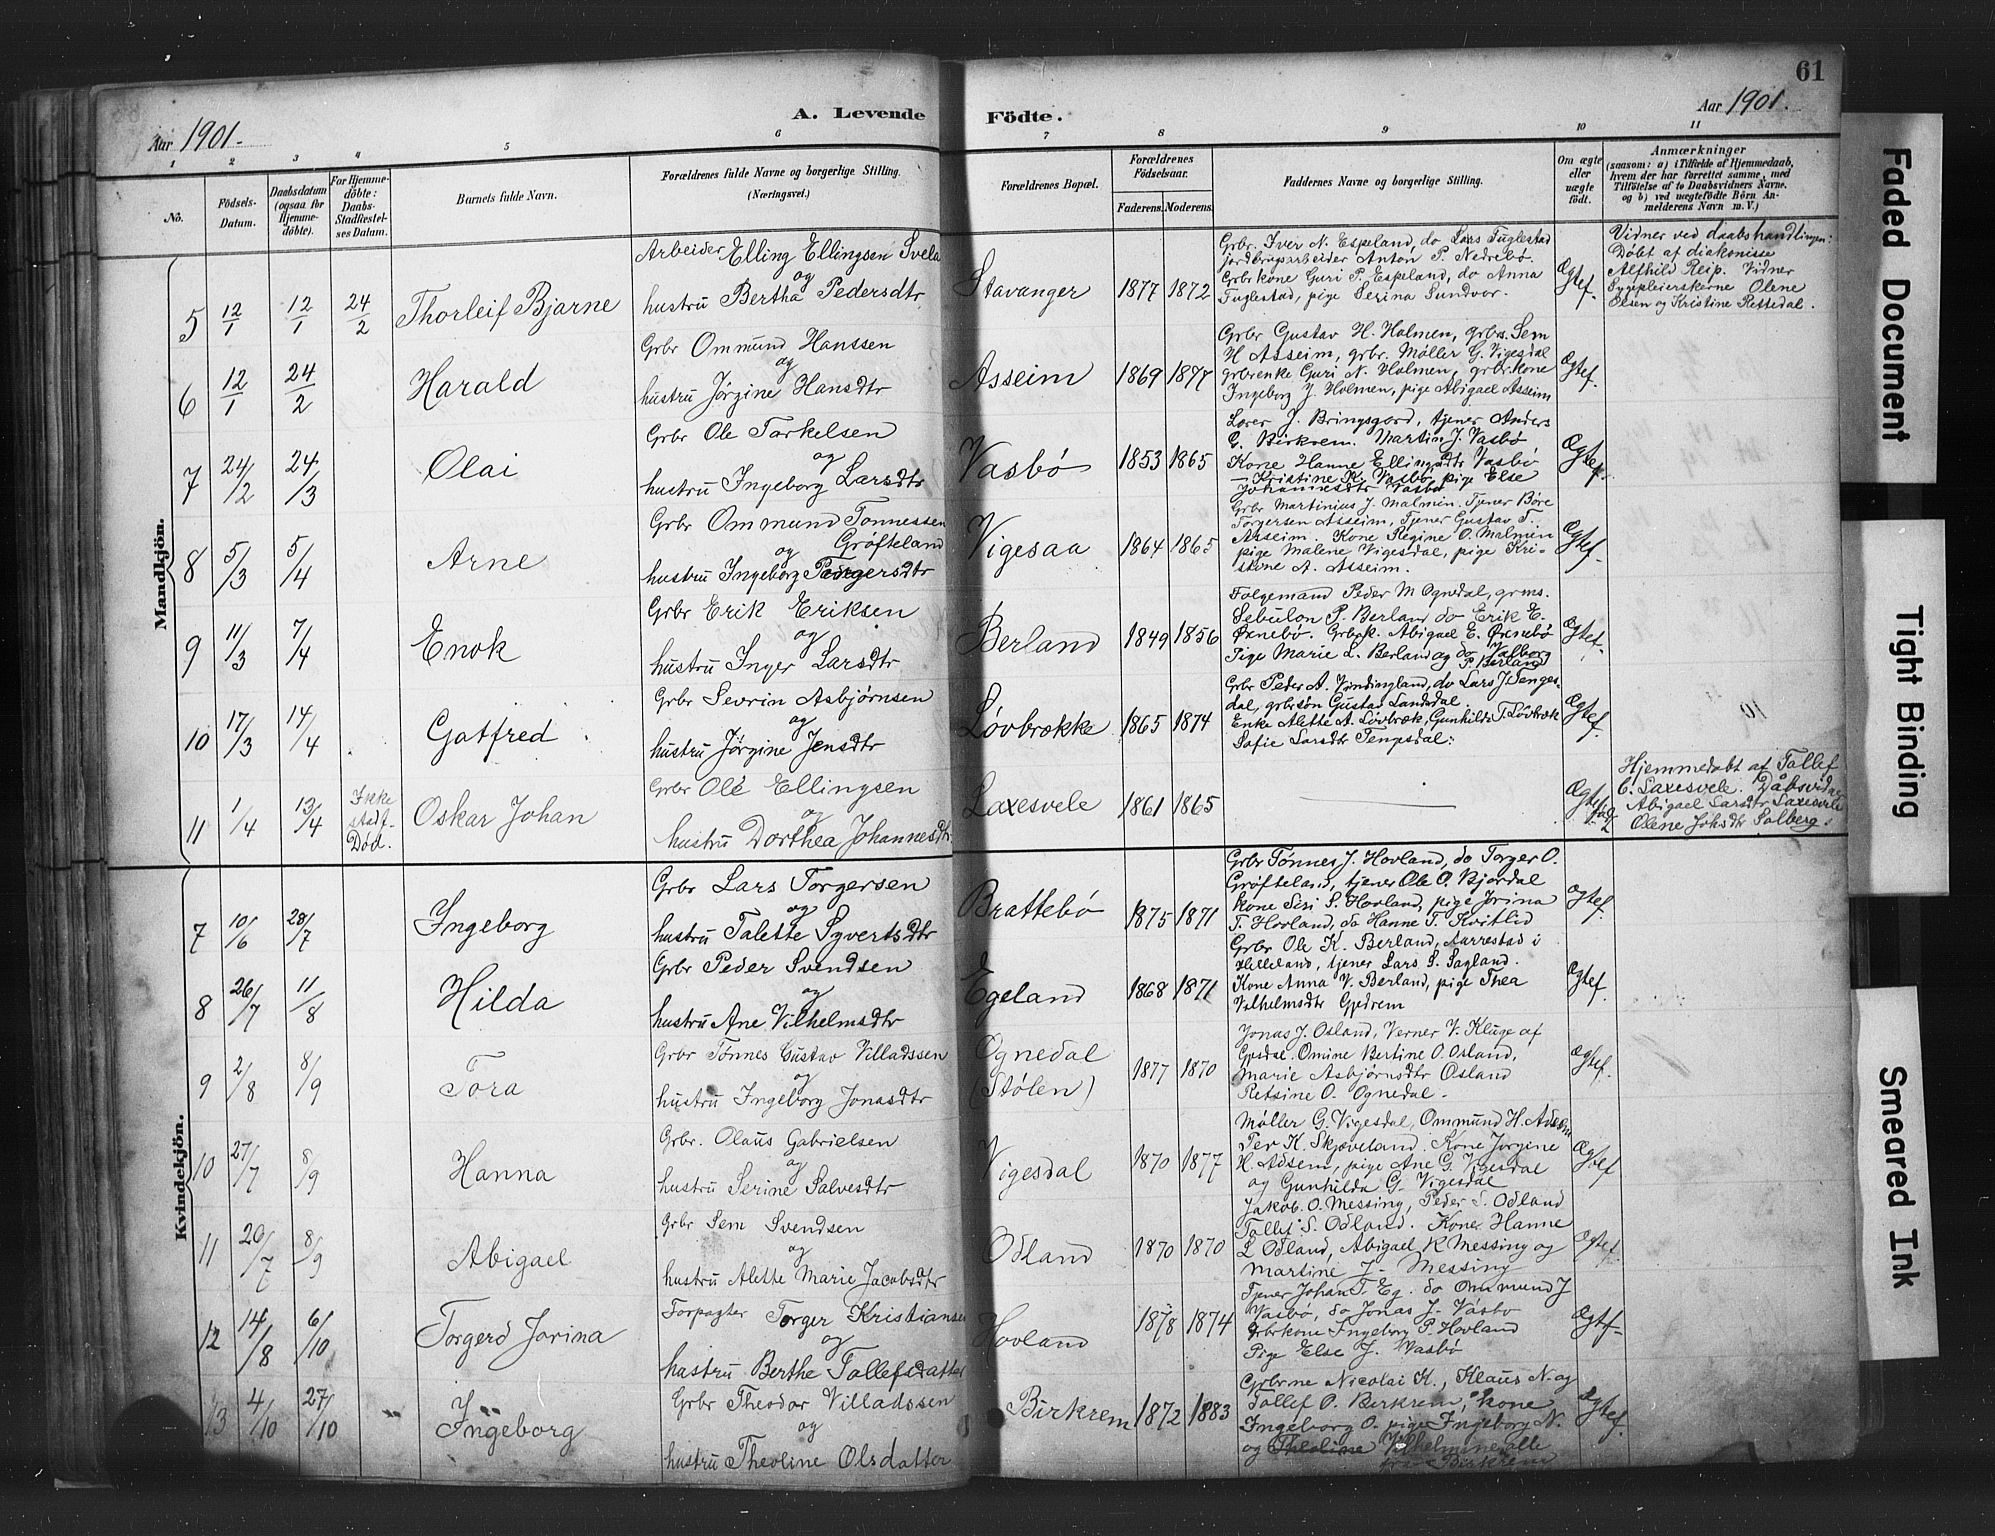 61
Aar 1901.
A. Levende Födte.
Aar 1901.
1 2 3 4 5 6 7 8 9 10 11
No.
Födsels-Datum.
Daabsdatum (ogsaa for Hjemmedöbte).
For Hjemmedöbte: Daabs-Stadfæstelses Datum.
Barnets fulde Navn.
Forældrenes fulde Navne og borgerlige Stilling. (Næringsvei.)
Forældrenes Bopæl.
Forældrenes Födselsaar.
Faderens. Moderens.
Faddernes Navne og borgerlige Stilling.
Om ægte eller uægte födt.
Anmærkninger
(saasom: a) i Tilfælde af Hjemmedaab,
hvem der har forrettet samme, med
Tilföielse af to Daabsvidners Navne.
og b) ved uægtefödte Börn An-
melderens Navn m. V.)
Mandkjön.
5 12/1 12/1 24/2 Thorleif Bjarne
Arbeider Elling Ellingsen Svela
og
hustru Bertha Pedersdtr
Stavanger 1877 1872
Grbr. Iver N. Espeland, do Lars Fuglestad
jordbrugsarbeider Anton P. Nedrebø.
Grbrkone Guri P. Espeland, do Anna
Fuglestad, pige Serina Sundvor.
Ægtef.
Vidner ved daabshandlingen:
Døbt af diakonisse
Alfhild Reip. Vidner
Sygepleierskerne Olene
Olsen og Kristine Rettedal.
6 12/1 24/2 Harald
Grbr Ommund Hanssen
og
hustru Jørgine Hansdtr
Asseim 1869 1877
Grbr Gustav H. Holmen, grbrs. Sem
H Asseim, grbr. Møller G. Vigesdal
grbrenke Guri N. Holmen, grbr.kone
Ingeborg J. Holmen, pige Abigael Asseim
Ægtef.
7 24/2 24/3 Olai
Grbr Ole Torkelsen
og
hustru Ingeborg Larsdtr
Vasbø 1853 1865
Lærer J. Bringsgord, tjener Anders
G. Birkrem. Martin J. Vasbø
Kone Hanne Ellingsdtr Vasbø
— Kristine K. Vasbø, pige Else
Johannesdtr Vasbø
Ægtef.
8 5/3 5/4 Arne
Grbr Ommund Tønnessen
Grøfteland
og
hustru Ingeborg Torgersdtr
Vigesaa 1864 1865
Grbr Martinius J. Malmin. Tjener Bore
Torgersen Asseim, Tjener Gustav T.
Asseim. Kone Regine O. Malmin
pige Malene Vigesdal, pige Kri-
stone A. Asseim.
Ægtef.
9 11/3 7/4 Enok
Grbr Erik Eriksen
og
hustru Inger Larsdtr
Berland 1849 1856
Folgemand Peder M Ognedal, grms.
Sebulon P. Berland do Erik E.
Ørnebø. Grbrk. Abigael E. Ørnebø
Pige Marie L. Berland og do Valborg
P. Berland
Ægtef.
10 17/3 14/4 Gotfred
Grbr Sevrin Asbjørnsen
og
hustru Jørgine Jensdtr
Løvbrække 1865 1874
Grbr Peder A. Vindingland, do Lars J. Tenges-
dal, grbrsøn Gustav Landsdal.
Enke Alette A. Løvbræk, Gunhilda T. Løvbræk
Sofie Larsdtr Tengsdal.
Ægtef.
11 1/4 13/4 Ikke stadf. Død. Oskar Johan
Grbr Ole Ellingsen
og
hustru Dorthea Johannesdtr
Laxesvele 1861 1865
Ægtefød
Hjemmedøbt af Tollef
C. Laxesvele. Dåbsvidner
Abigael Larsdtr Laxesvele
Olene Johsdtr Solberg.
Kvindekjön.
7 10/6 28/7 Ingeborg
Grbr Lars Torgersen
og
hustru Talette Syvertsdtr
Brattebø 1875 1871
Grbr Tønnes J. Hovland, do Torger O.
Grøfteland, tjener Ole O. Bjordal
kone Siri S. Hovland, pige Jorina
T. Hovland, do Hanne T. Kvitlid
Ægtef.
8 26/7 11/8 Hilda
Grbr Peder Svendsen
og
hustru Ane Vilhelmsdtr
Egeland 1868 1871
Grbr Ole K. Berland, Aarrestad i
Helleland, tjener Lars S. Sagland.
Kone Anna V. Berland, pige Thea
Vilhelmsdtr Gjedrem
Ægtef.
9 2/8 8/9 Tora
Grbr Tønnes Gustav Villadssen
og
hustru Ingeborg Jonasdtr
Ognedal
(Stølen) 1877 1870
Jonas J. Osland, Verner V. Kluge af
Omine Bertine O. Osland,
Marie Asbjørnsdtr Osland
Retsine O. Ognedal.
Ægtef.
10 27/7 8/9 Hanna
Grbr. Olaus Gabrielsen
og
hustru Serine Salvesdtr
Vigesdal 1870 1877
Møller G. Vigesdal, Ommund H. Adsem
Per K. Skjæveland. Kone Jørgine
H. Adsem, pige Ane G. Vigesdal
og Gunhilda G. Vigesdal
Ægtef.
11 20/7 8/9 Abigael
Grbr Sem Svendsen
og
hustru Alette Marie Jacobsdtr
Odland 1870 1870
Jakob O. Messing, Peder S. Odland
Tollef S. Odland. Kone Hanne
L Odland, Abigael K Messing og
Martine J. Messing
Ægtef.
12 14/8 6/10 Torgerd Jorina
Forpagter Torger Kristiansen
og
hustru Berthe Tollefsdatter
Hovland 1878 1874
Tjener Johan T. Eg. do Ommund J
Vasbø, do Jonas J. Vasbø
Grbrkone Ingeborg P. Hovland
Pige Else J. Vasbø
Ægtf.
13 4/10 27/10 Ingeborg
Grbr Theodor Villadssen
og
hustru Theoline Olsdatter
Birkrem 1872 1883
Grbrne Nicolai K., Klaus N. og
Tollef O. Birkrem, kone
Ingeborg O. pige Ingeborg N.
og Theoline Vilhelmine alle
fra Birkrem
Ægtef.
Faded Document
Tight Binding
Smeared Ink